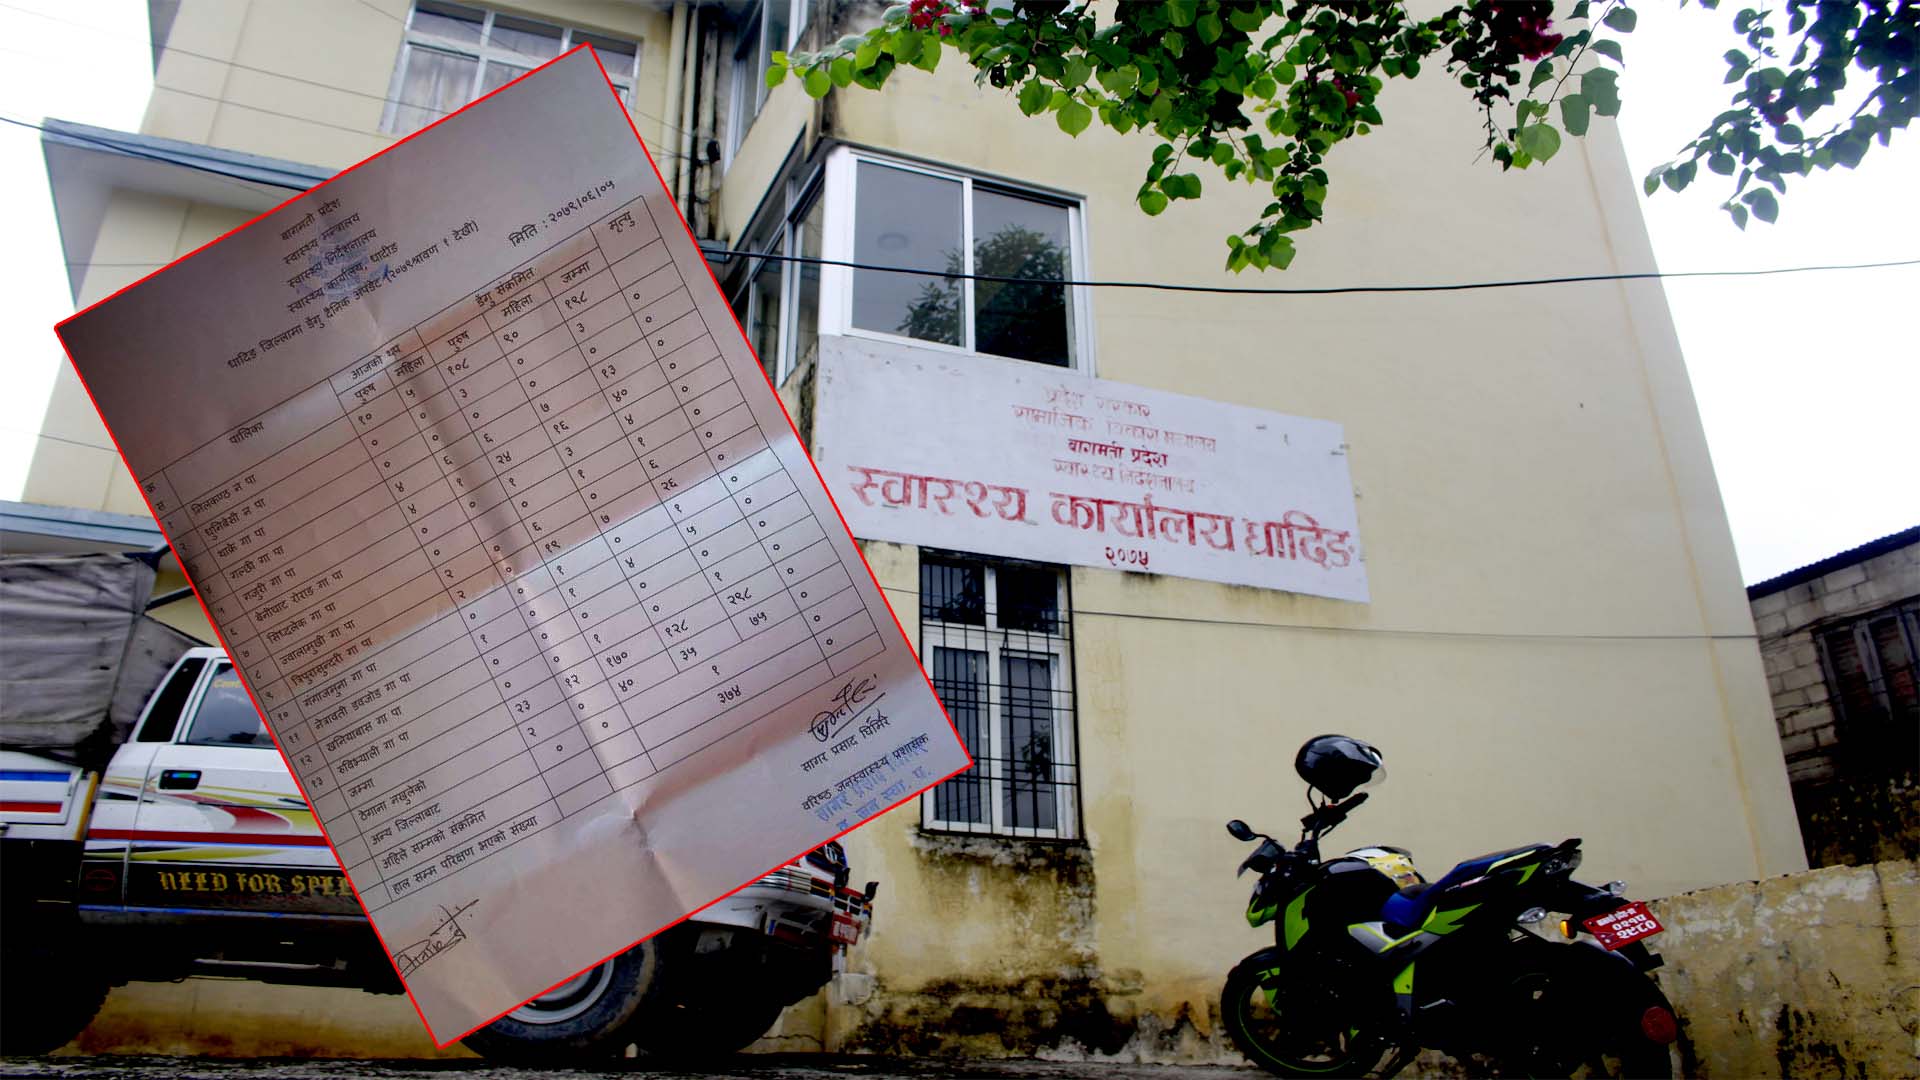 बागमती प्रदेश
स्वास्थ्य मन्त्रालय
स्वास्थ्य निर्देशनालय
स्वास्थ्य कार्यालय, धादीङ
धादिङ जिल्लामा डेंगु दैनिक अपडेट (२०७९श्रावण १ देखी)
मिति : २०७९।०६।०५
क्र स पालिका आजको थप डेंगु संक्रमित मृत्यु
पुरुष महिला पुरुष महिला जम्मा
१ निलकण्ठ न पा १० ५ १०८ ९० १९८ ०
२ धुनिबेसी न पा ० ० ३ ० ३ ०
३ थाक्रे गा पा ० ० ० ० ० ०
४ गल्छी गा पा ४ ६ ६ ७ १३ ०
५ गजुरी गा पा ४ १ २४ १६ ४० ०
६ बेनीघाट रोराङ गा पा ० ० १ ३ ४ ०
७ सिध्दलेक गा पा ० ० ० १ १ ०
८ ज्वालामुखी गा पा २ ० ६ ० ६ ०
९ त्रिपुरासुन्दरी गा पा २ ० १९ ७ २६ ०
१० गंगाजमुना गा पा ० ० १ ० १ ०
११ नेत्रावती डबजोङ गा पा १ ० १ ४ ५ ०
१२ खनियाबास गा पा ० ० ० ० ० ०
१३ रुविभ्याली गा पा ० ० १ ० १ ०
जम्मा २३ १२ १७० १२८ २९८ ०
ठेगाना नखुलेको २ ० ४० ३५ ७५ ०
अन्य जिल्लाबाट ० ० १
अहिले सम्मको संक्रमित ३७४
हाल सम्म परिक्षण भएको संख्या
सागर प्रसाद घिमिरे
वरिष्ठ जनस्वास्थ्य प्रशासक
प्रदेश सरकार
सामाजिक विकास मन्त्रालय
बागमती प्रदेश
स्वास्थ्य निर्देशनालय
स्वास्थ्य कार्यालय धादिङ
२०७५
NEED FOR SPEE